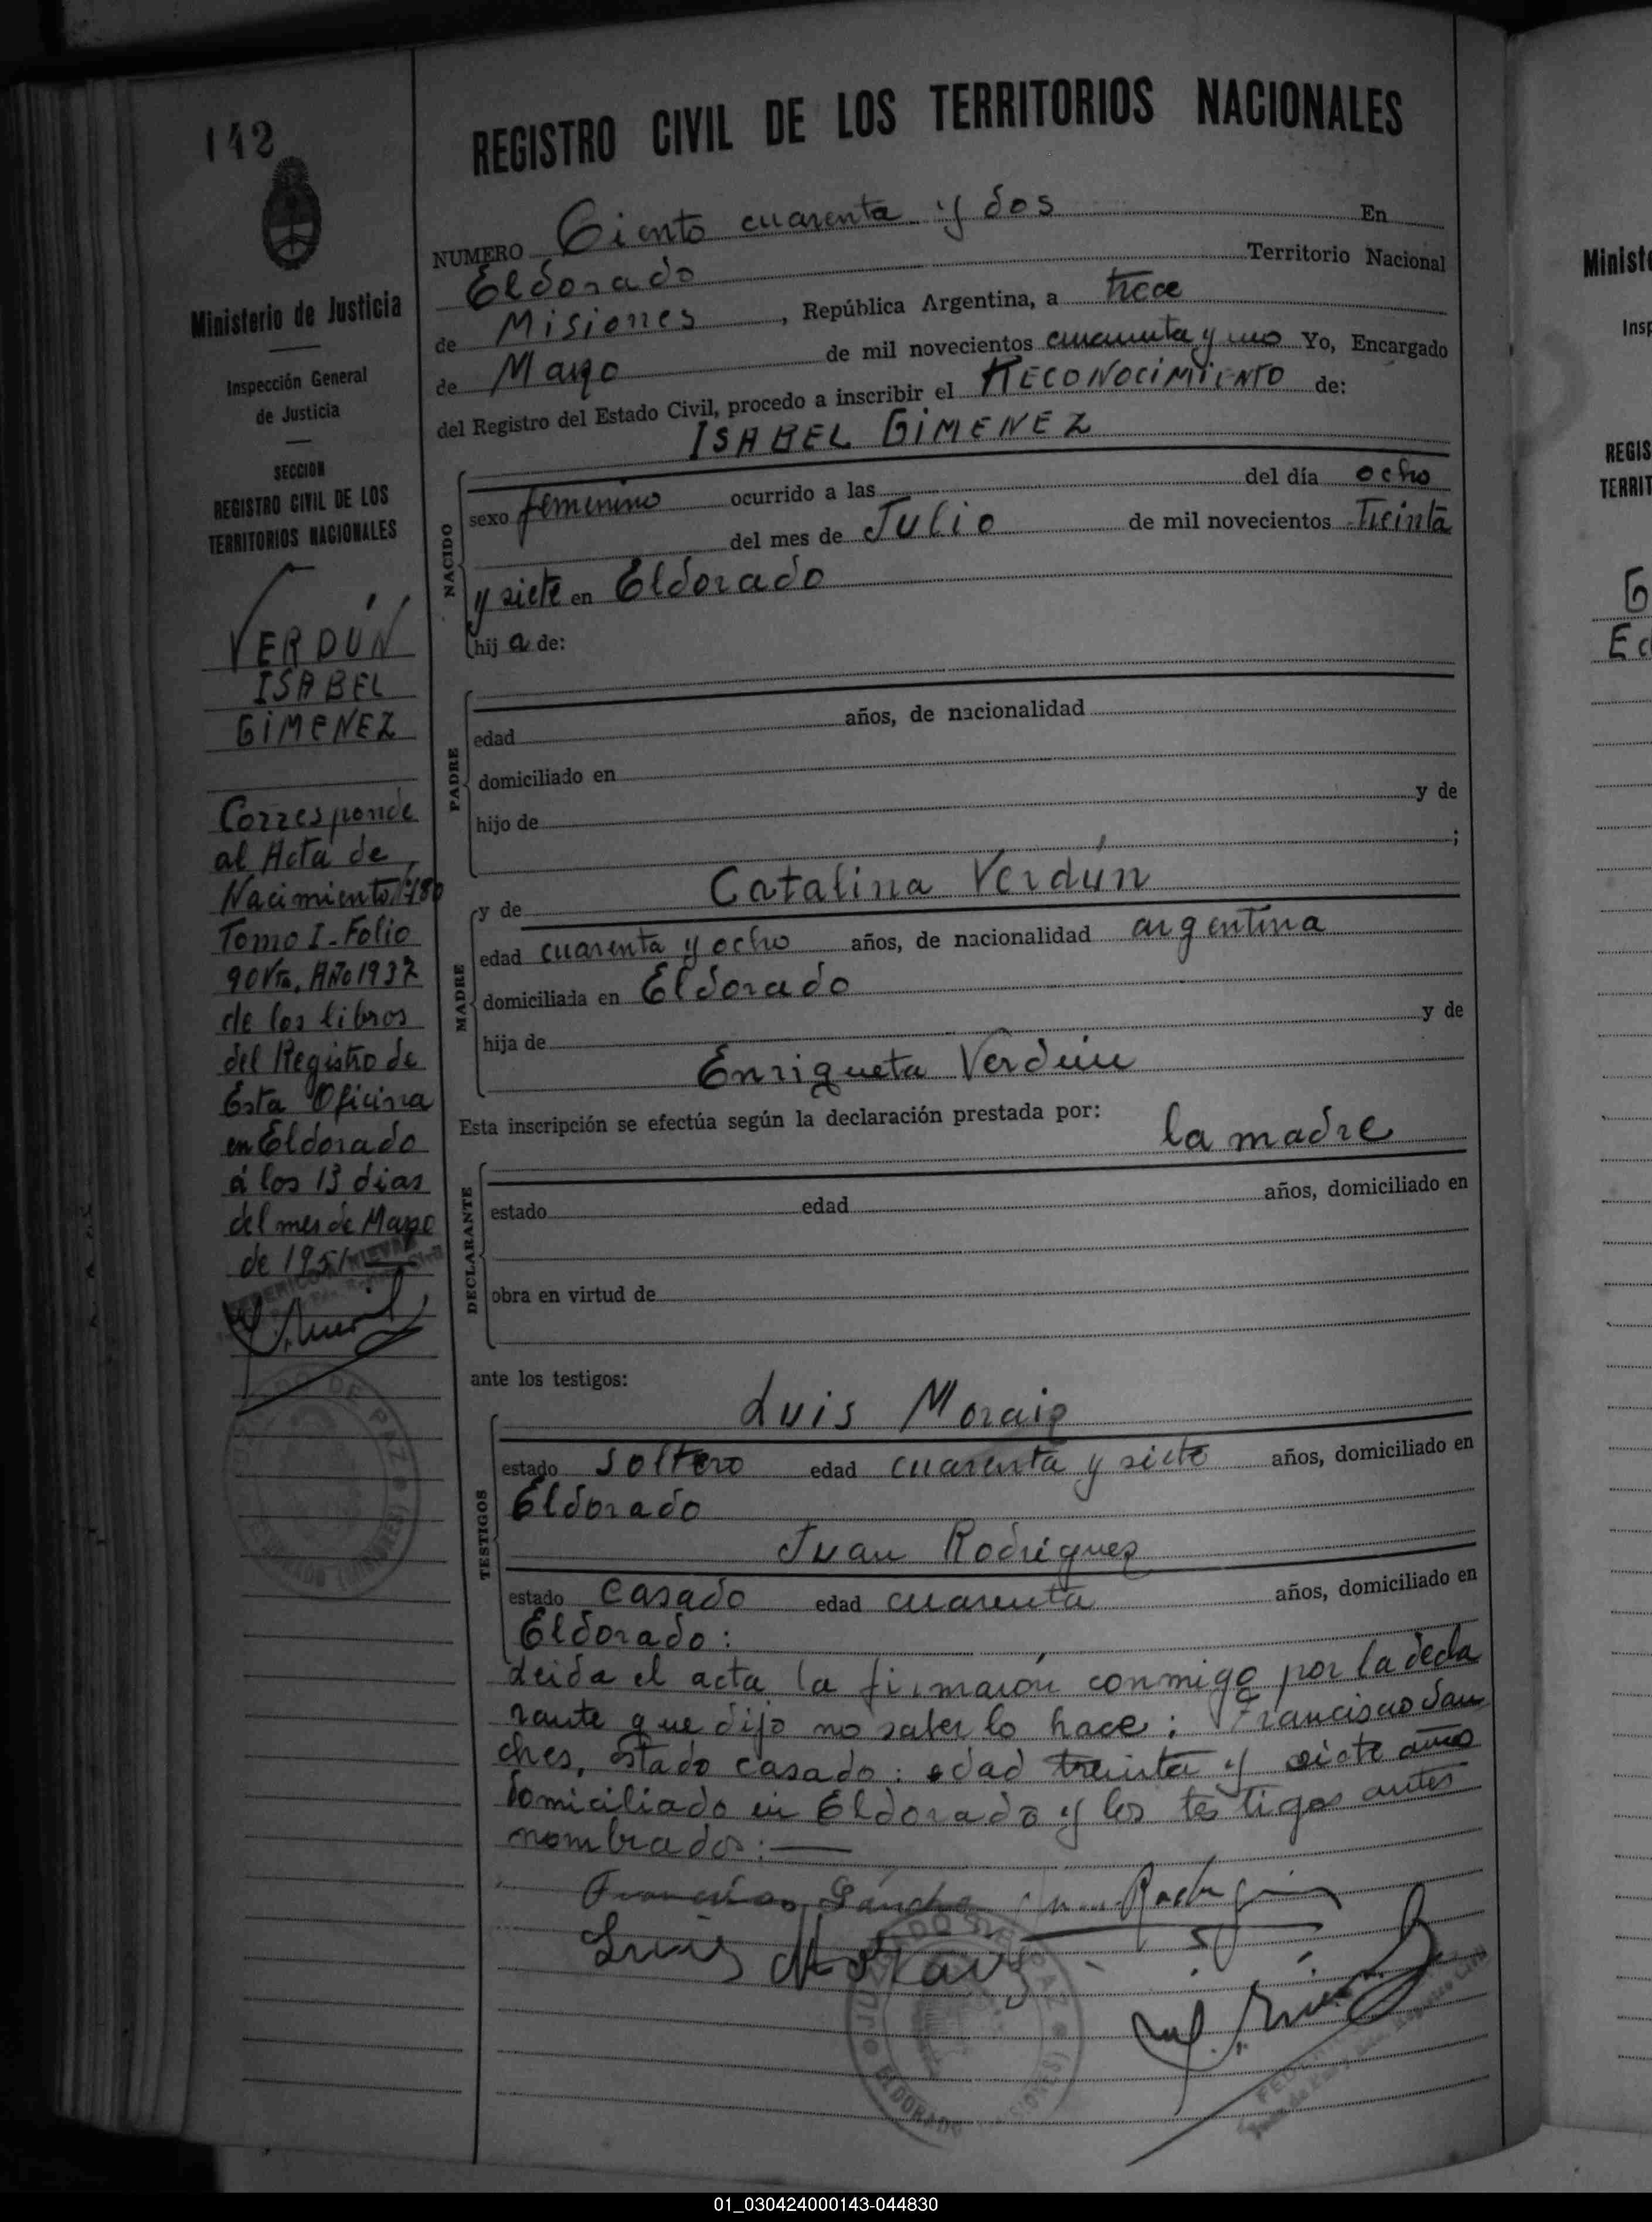 142
REGISTRO CIVIL DE LOS TERRITORIOS NACIONALES
NUMERO Ciento cuarenta y dos En
Eldorado Territorio Nacional
de Misiones, República Argentina, a trece
de Mayo de mil novecientos cincuenta y uno Yo, Encargado
del Registro del Estado Civil, procedo a inscribir el RECONOCIMIENTO de:
ISABEL GIMENEZ
NACIDO
sexo femenino ocurrido a las del día ocho
del mes de Julio de mil novecientos Treinta
y siete en Eldorado
hij a de:
PADRE
edad años, de nacionalidad
domiciliado en
hijo de y de
;
y de Catalina Verdún
MADRE
edad cuarenta y ocho años, de nacionalidad argentina
domiciliada en Eldorado
hija de y de
Enriqueta Verdún
Esta inscripción se efectúa según la declaración prestada por: la madre
DECLARANTE
estado edad años, domiciliado en
obra en virtud de
ante los testigos:
Luis Moraiz
TESTIGOS
estado soltero edad cuarenta y siete años, domiciliado en
Eldorado
Juan Rodriguez
estado Casado edad cuarenta años, domiciliado en
Eldorado:
Leida el acta la firmaron conmigo por la decla
rante que dijo no saber lo hace: Francisco San
ches, estado casado: edad treinta y siete años
domiciliado en Eldorado y los testigos antes
nombrados:—
Francisco Sanche
Luis Moraiz
ELDORADO (MISIONES)
Ministerio de Justicia
Inspección General
de Justicia
SECCION
REGISTRO CIVIL DE LOS
TERRITORIOS NACIONALES
VERDÚN
ISABEL
GIMENEZ
Corresponde
al Acta de
Nacimiento 180
Tomo I-Folio
90 Vta. Año 1937
de los libros
del Registro de
Esta Oficina
en Eldorado
á los 13 dias
del mes de Mayo
de 1951
Minist
Insp
REGIS
TERRIT
G
Ed
01_030424000143-044830